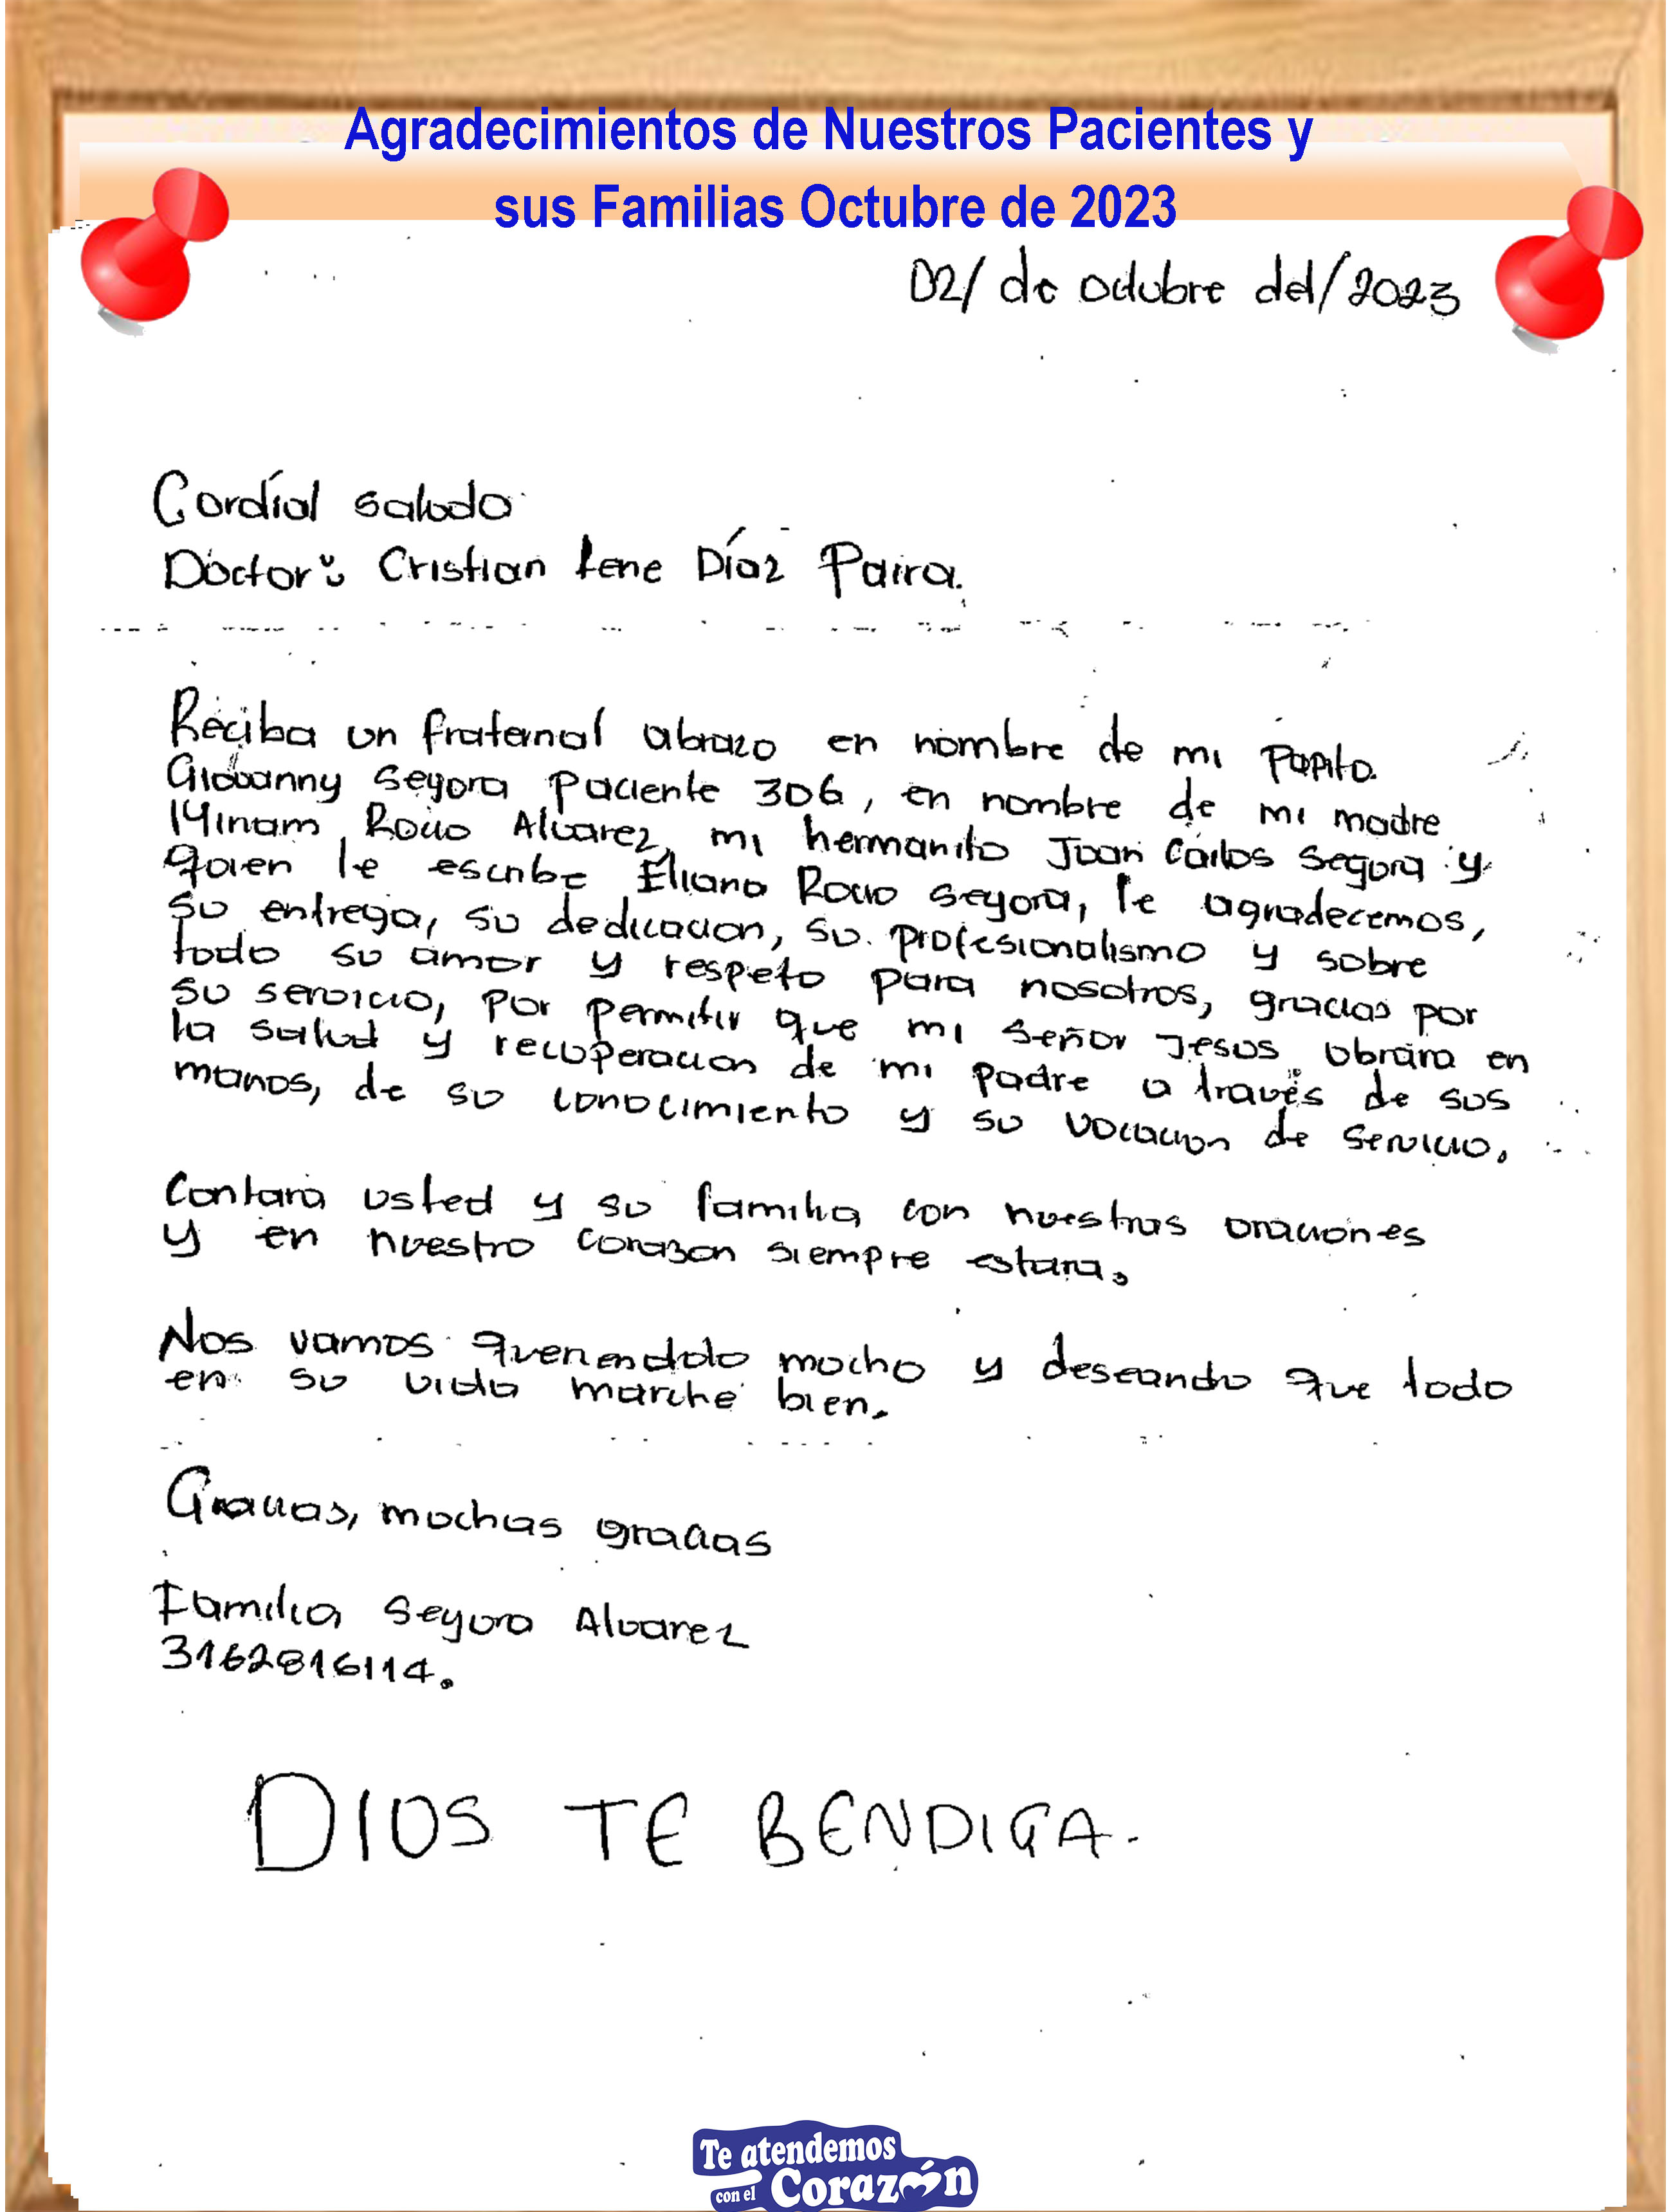 Agradecimientos de Nuestros Pacientes y
sus Familias Octubre de 2023
02/ de octubre del/2023
Cordíal saludo
Doctor: Cristian Rene Díaz Paira.
Reciba un fraternal abrazo en nombre de mi Papito
Giovanny Segura Paciente 306, en nombre de mi madre
Miriam Rocio Alvarez, mi hermanito Juan Carlos Segura y
quien le escribe Eliana Rocio Segura, le agradecemos,
su entrega, su dedicacion, su profesionalismo y sobre
todo su amor y respeto para nosotros, gracias por
su servicio, por permitir que mi Señor Jesus obrara en
la salud y recuperacion de mi padre a través de sus
manos, de su conocimiento y su vocacion de servicio.
Contara usted y su familia con nuestras oraciones
y en nuestro corazon siempre estara.
Nos vamos queriendolo mucho y deseando que todo
en su vida marche bien.
Gracias, muchas gracias
Familia Segura Alvarez
3162816114.
DIOS TE BENDIGA.
Te atendemos
con el Corazón